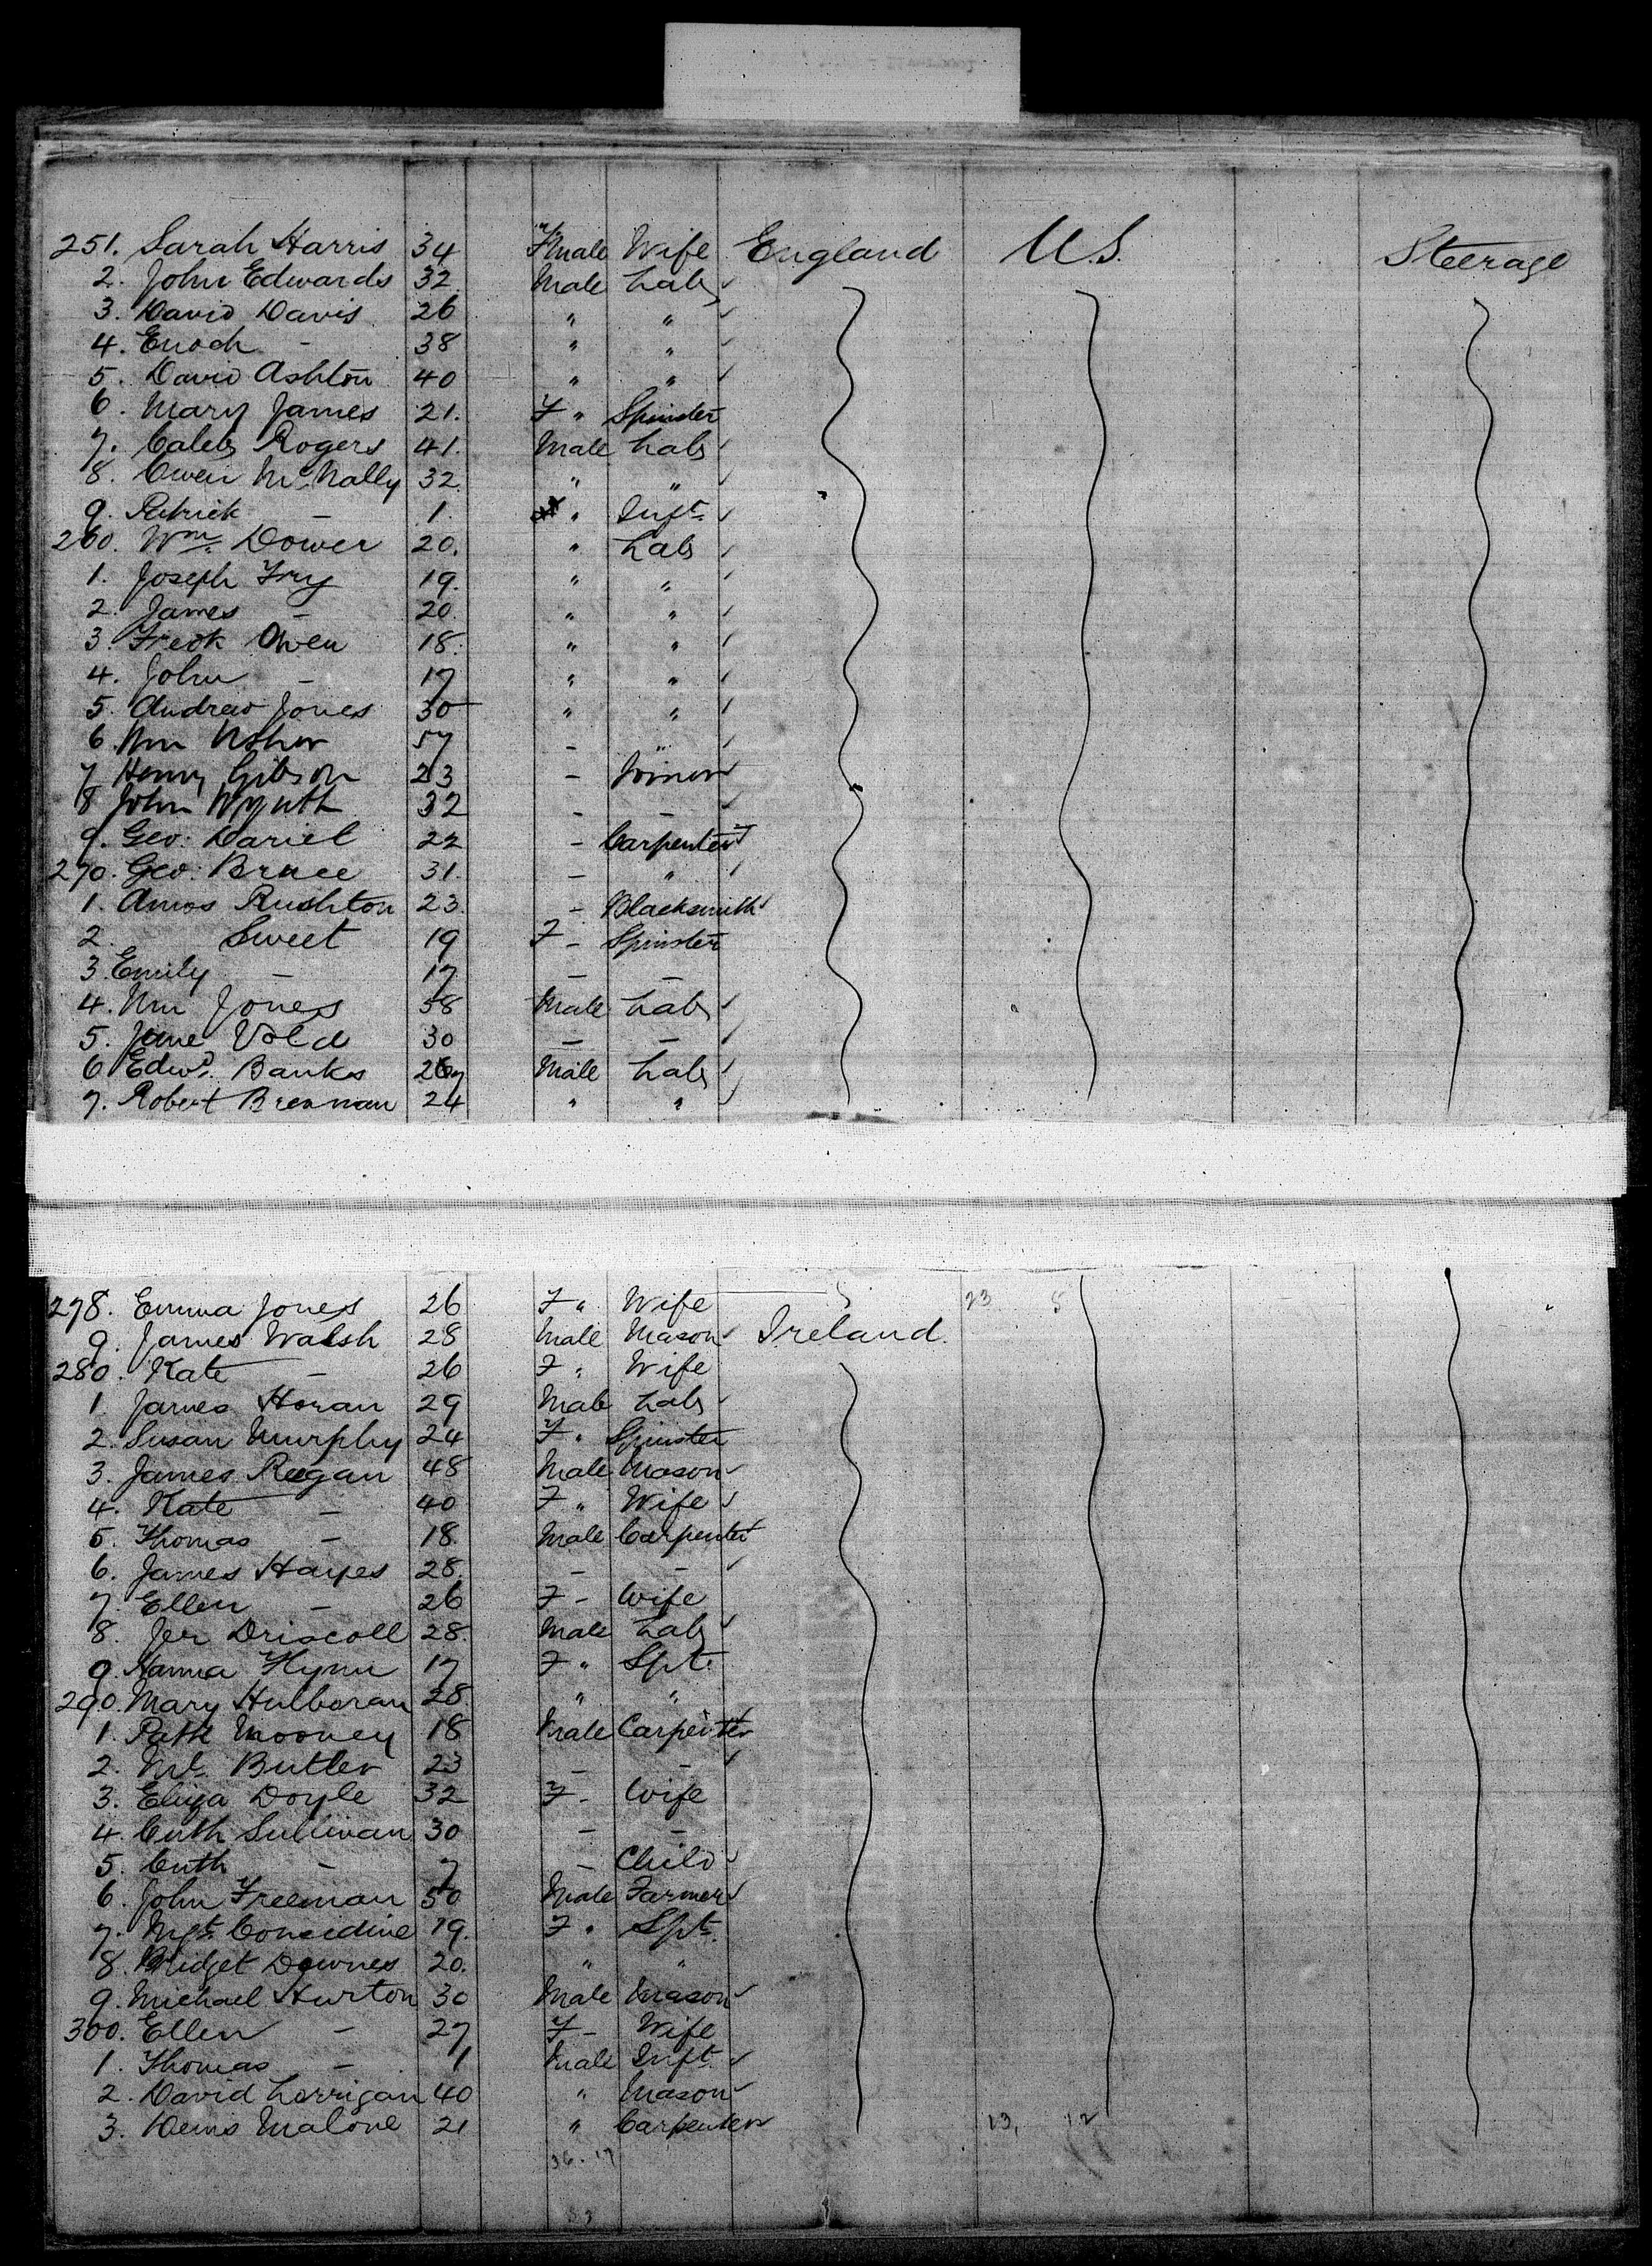 251. Sarah Harris 34 Fmale Wife England U.S. Steerage
2. John Edwards 32 Male Lab
3. David Davis 26 " "
4. Enoch - 38 " "
5. David Ashton 40 " "
6. Mary James 21. F " Spinster
7. Caleb Rogers 41. Male Lab
8. Owen McNally 32. " "
9. Patrick - 1. " Inft.
260. Wm. Dower 20. " Lab
1. Joseph Fry 19. " "
2. James - 20. " "
3. Fredk Owen 18. " "
4. John - 17 " "
5. Andrew Jones 30 " "
6. Wm Usher 57 - "
7 Henry Gibson 23 - Joiner
8 John 32 - -
9. Geo. Daniel 22 - Carpenter
270. Geo. Bruce 31. - "
1. Amos Rushton 23. - Blacksmith
2. Sweet 19 F - Spinster
3. Emily - 17 - -
4. Wm Jones 58 Male Lab
5. Jane 30 - -
6 Edwd. Banks Male Lab
7. Robert Brennan 24 " "
278. Emma Jones 26 F " Wife 23 5
9. James Walsh 28 Male Mason Ireland.
280. Kate - 26 F " Wife
1. James Horan 29 Male Lab
2. Susan Murphy 24 F " Spinster
3. James Regan 48 Male Mason
4. Kate - 40 F " Wife
5. Thomas - 18. Male Carpenter
6. James Hayes 28. - -
7. Ellen - 26 F - Wife
8. Jer Driscoll 28. Male Lab
9. Hanna Flynn 17 F " Spt.
290. Mary Hulboran 28. " "
1. Patk Mooney 18 Male Carpenter
2. Ml. Butler 23 - -
3. Eliza Doyle 32 F - Wife
4. Cath Sullivan 30 - -
5. Cath - 7 - Child
6. John Freeman 50 Male Farmer
7. Mgt. Considine 19. F " Spt.
8. Bridget Downes 20. " "
9. Michael Hurton 30 Male Mason
300. Ellen - 27 F - Wife
1. Thomas - 1 Male Inft.
2. David Lorrigan 40 " Mason
3. Denis Malone 21 " Carpenter 13, 12
36 - 17